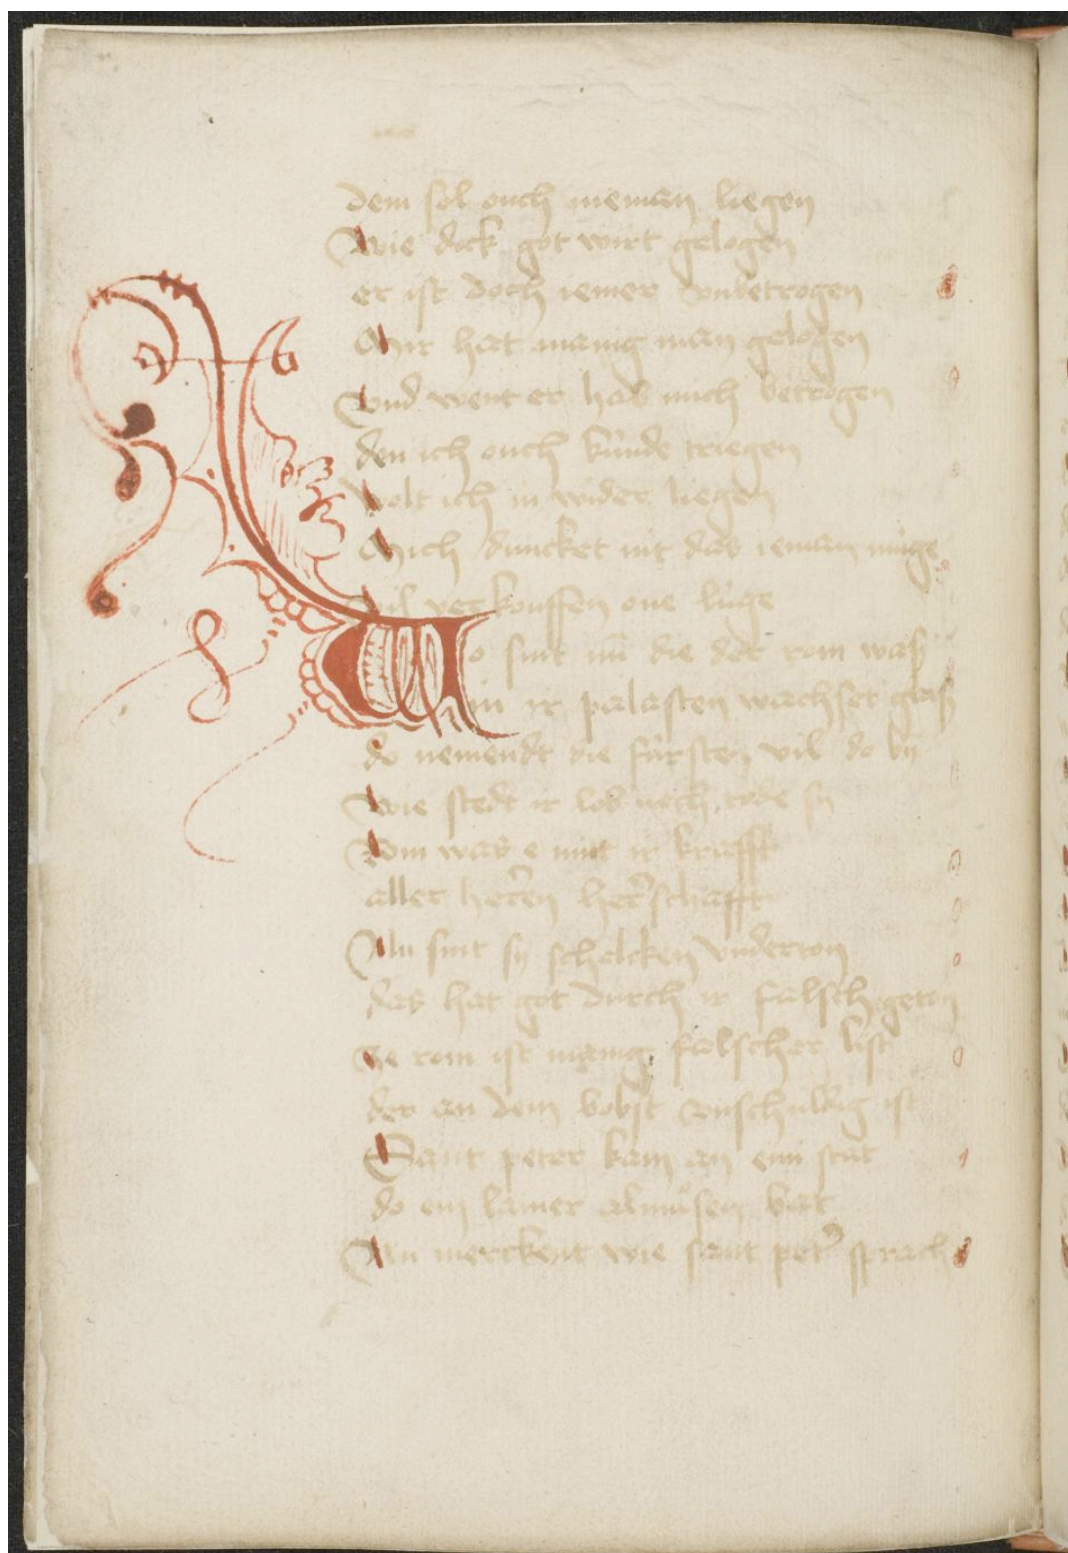 dem sol ouch nieman liegen
Wie dick got wirt gelogen
er ist doch iemer vnbetrogen
Mir hat manig man gelogen
Vnd went er hab mich betrogen
den ich ouch kúnde triegen
Wolt ich in wider liegen
Mich duncket nit das ieman múge
Vil verkouffen one lúge
Wo sint nū die der rom waß
in ir palasten wachset graß
do nemendt die fúrsten vil do by
Wie stedt ir lob nach tode sy
Rom waß e mit ir krafft
aller heren herschafft
Nu sint sy schelcken vnderton
das hat got durch ir falsch geton
Ze rom ist manig falscher list
der an dem bobst vnschuldig ist
Sant peter kam an ein stat
do ein lamer almůsen bat
Nu merckent wie sant pet' sprach